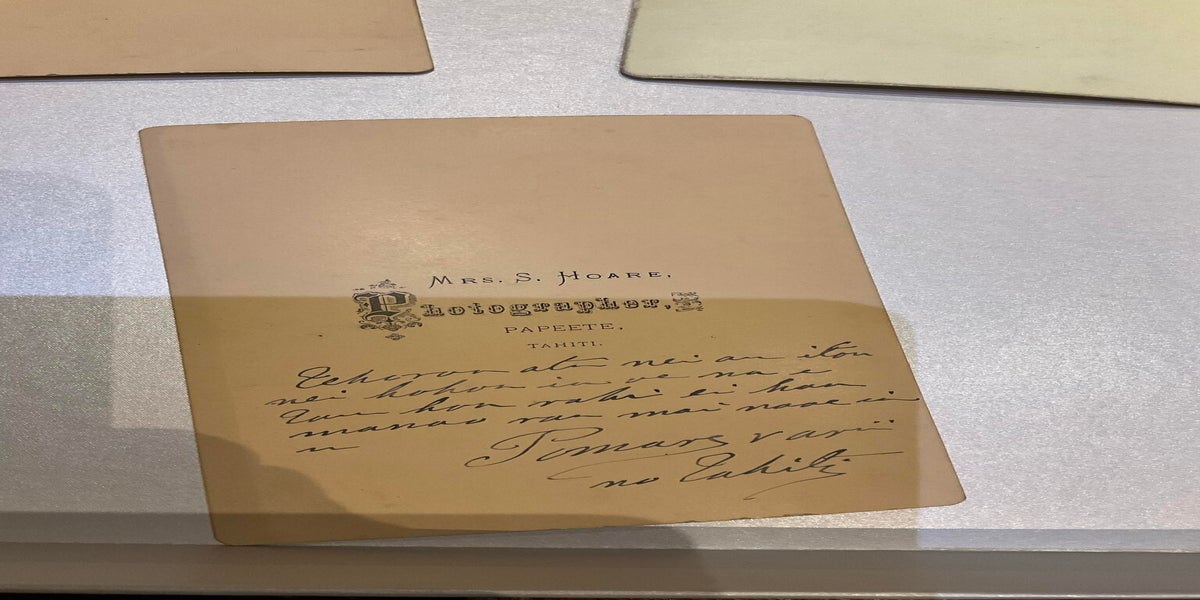 MRS. S. HOARE,
Photographer,
PAPEETE,
TAHITI.
atu nei au i tou
nei hohoa ia oe na e
Tau hoa rahi ei haa
manao raa mai naoe ia
u
Pomare v arii
no Tahiti